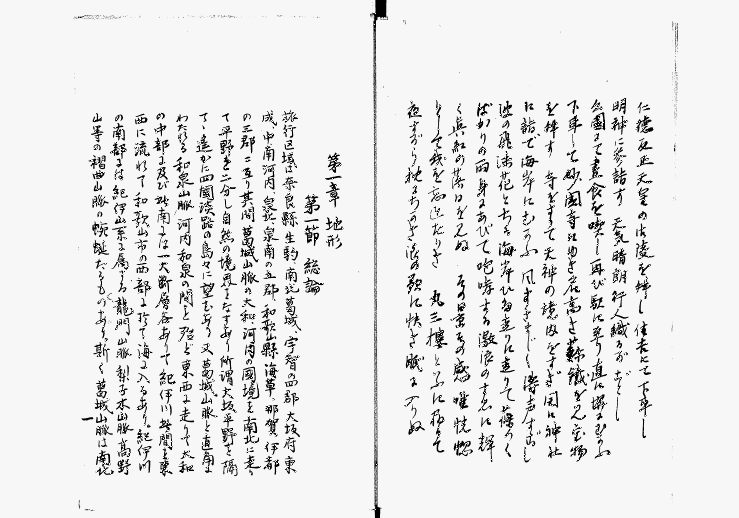 仁徳反正天皇の御陵を拝し住吉にて下車し
明神に参詣す天気晴朗行人織るがごとし
公園にて昼食を喫し再び駅に至り直に堺にむかふ
下車して妙國寺に
名高き蘇鐵を見宝物
を拝す寺をすて天神の境内をすぎ
神社
に詣で海岸にむかふ風すさまじく濤声すごし
波の飛沫花とちる海岸ひた走りに走りて
ばかりの雨身にあびて咆哮する激浪の
に輝
く真紅の落日を見ぬその景その感唯恍惚
りして我を忘れたりき丸三樓とふに宿りて
夜すがら枕にちかき浪の歌に快き眠に入りぬ
第一章 地形
第一節 総論
旅行区域は奈良縣生駒、南北葛城、宇智の四郡大坂府東
成、中南河内、泉北、泉南の五郡、和歌山縣海草、那賀、伊都
の三郡に亙り其間葛城山脈の大和河内の國境を南北に走り
て平野を二分し自然の境界をなすあり所謂大坂平野を隔
てゝ遙かに四國淡路の島々に望むあり又葛城山脈と直角に
わたれる和泉山脈河内和泉の間を殆ど東西に走りて大和
の中部に及び北南には一大断層谷ありて紀伊川谷間を東
西に流れて和歌山市の西部に於て海に入るあり紀伊川
の南部には紀伊山系に属する龍門山脈梨子木山脈高野
山等の褶曲山脈の蜿蜒たるものあり、斯く葛城山脈は南北
一